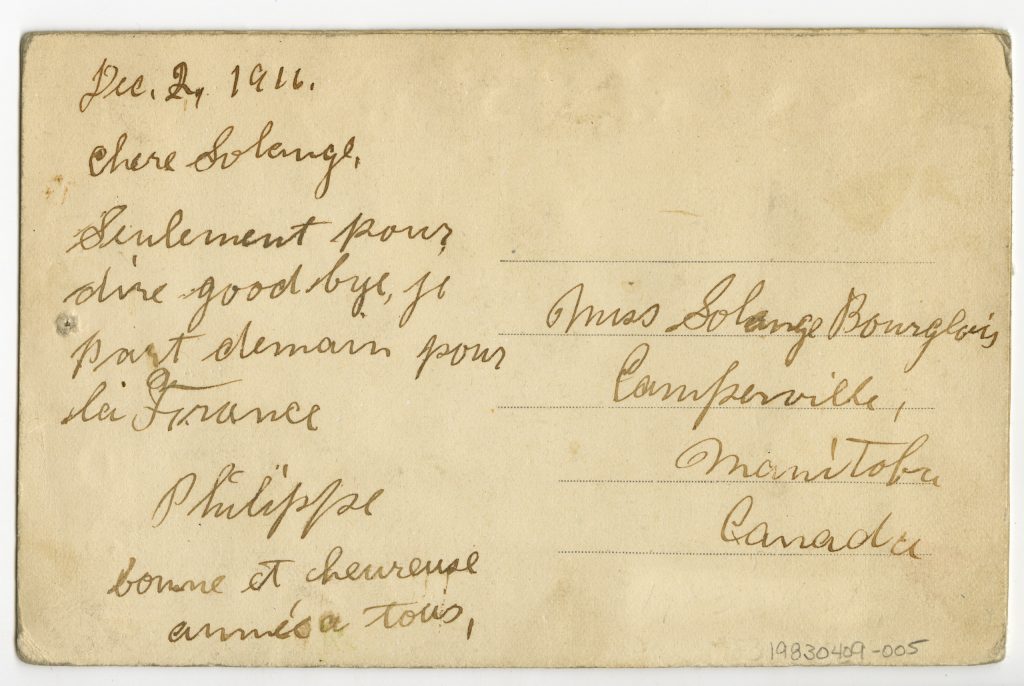 Dec. 2, 1916.
Chere Solange,
Seulement pour
dire good bye, je
part demain pour
la France
Philippe
bonne et cheureuse
année a tous,
Miss Solange Bourglois
Camperville,
Manitoba
Canada
19830409-005